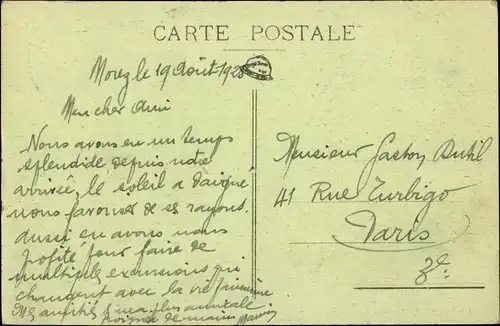 CARTE POSTALE
Morez le 19 Août 1928
Mon cher Ami
Nous avons eu un temps
splendide depuis notre
arrivée, le soleil a daigné
nous favoriser de ses rayons.
aussi en avons nous
profité pour faire de
multiples excursions qui
changent avec la vie parisienne
Mes amitiés & ma plus amicale
poignée de main
Monsieur Gaston Dutil
41 Rue Turbigo
Paris
3e